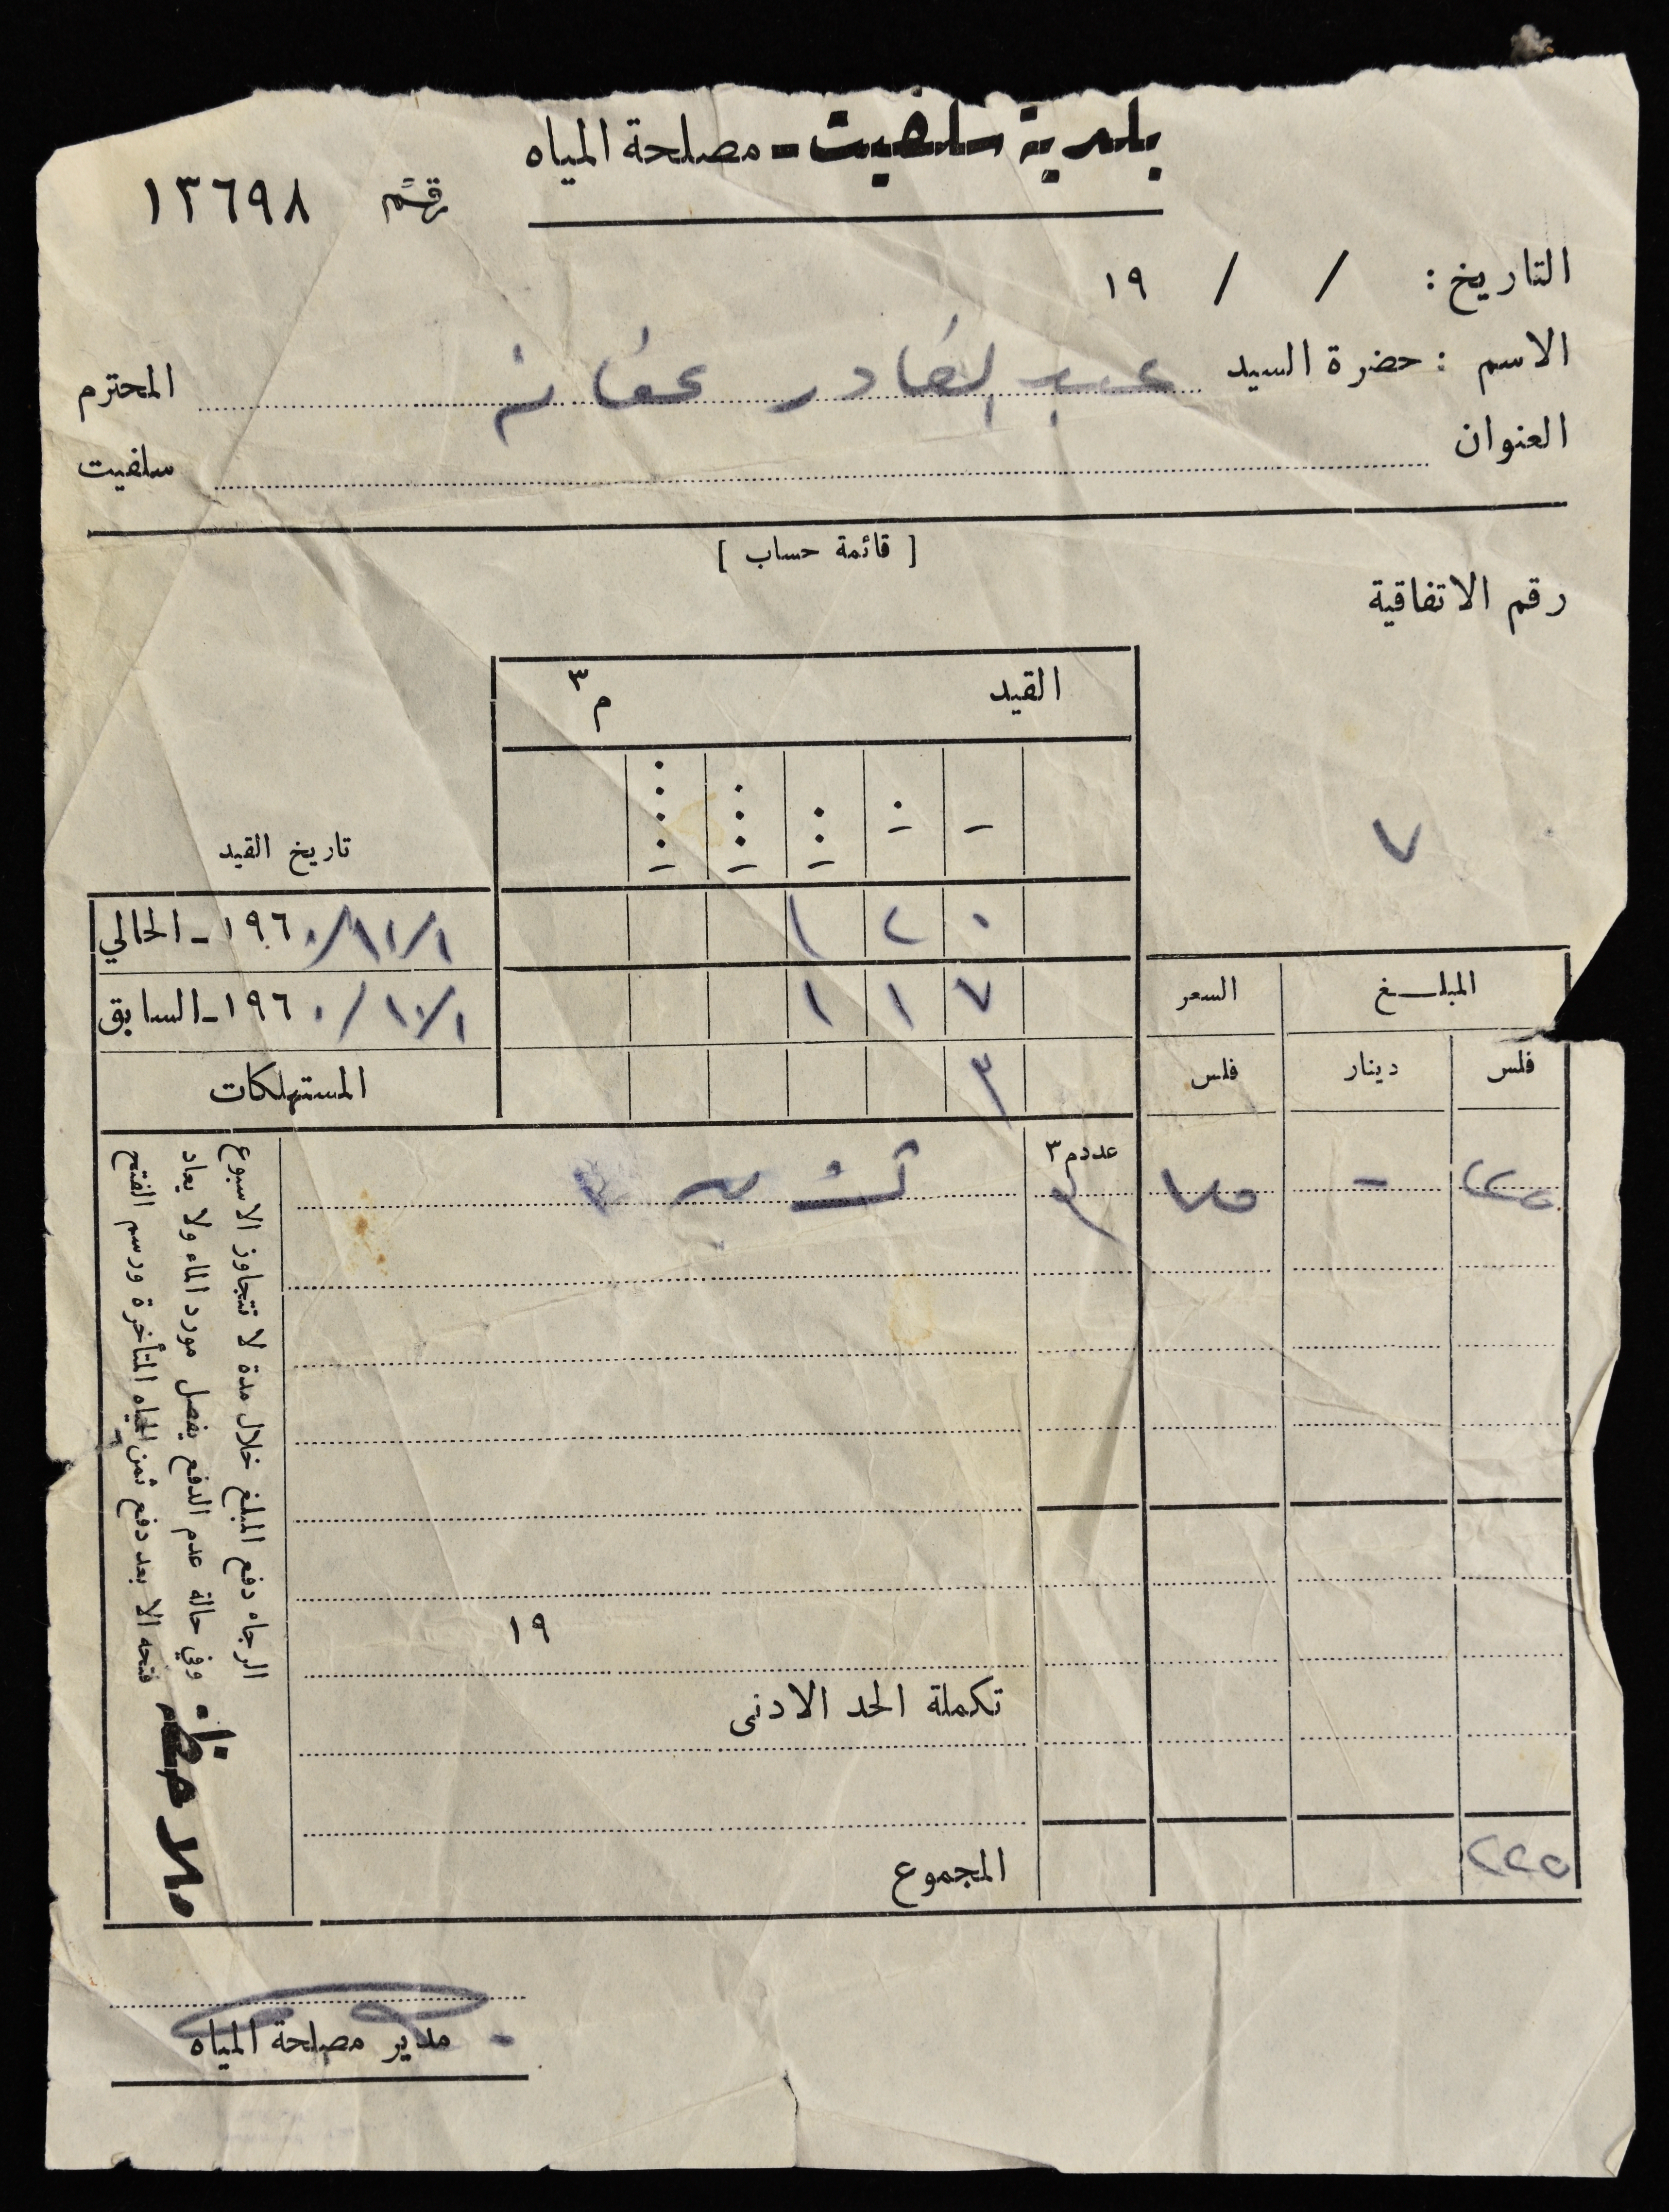 بلدية سلفيت - مصلحة المياه
رقم ١٣٦٩٨
التاريخ : / / ١٩
الاسم : حضرة السيد عبد القادر عفانه المحترم
العنوان سلفيت
[ قائمة حساب ]
رقم الاتفاقية
القيد م٣
٧
تاريخ القيد
١ ١٠ ١٠٠ ١٠٠٠ ١٠٠٠٠
١٢٠
١٩٦٠/١١/١ - الحالي
١١٧
١٩٦٠/١٠/١ - السابق
المستهلكات ٣
المبلغ السعر
فلس دينار فلس
عدد م٣
٢٢٥ - ٧٥ ٣
١٩
تكملة الحد الادنى
المجموع
٢٢٥
ملاحظة
الرجاء دفع المبلغ خلال مدة لا تتجاوز الاسبوع
وفي حالة عدم الدفع يفصل مورد الماء ولا يعاد
فتحه الا بعد دفع ثمن المياه المتأخرة ورسم الفتح
مدير مصلحة المياه